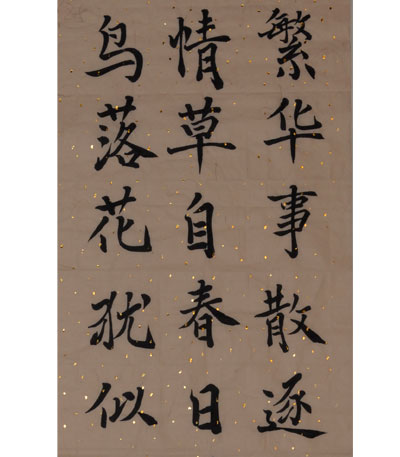 繁华事散逐
情草自春日
鸟落花犹似